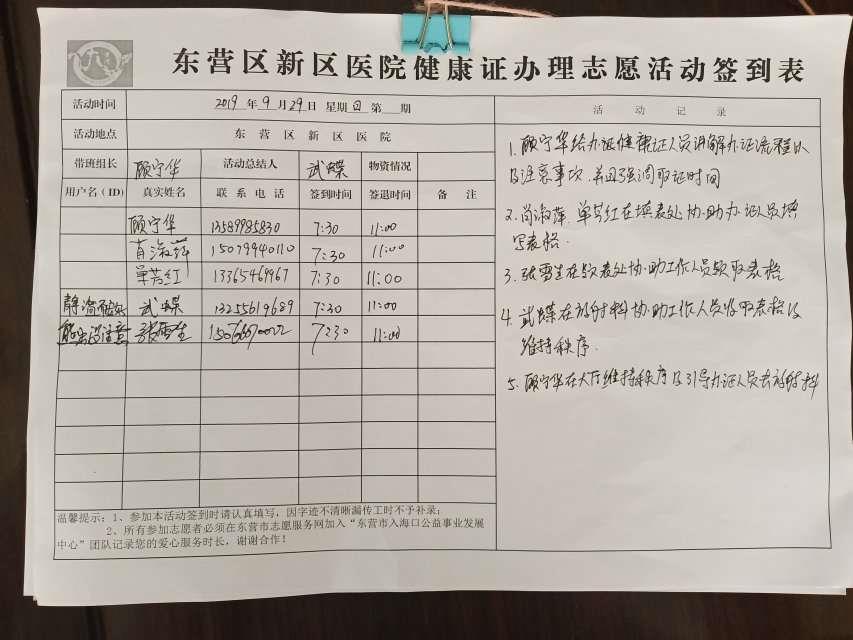 东营区新区医院健康证办理志愿活动签到表
活动时间 2019年9月29日 星期日 第 期
活动地点 东营区新区医院
带班组长 顾守华 活动总结人 武蝶 物资情况
用户名(ID) 真实姓名 联系电话 签到时间 签退时间 备注
顾守华 13589985830 7:30 11:00
肖淑萍 15079940110 7:30 11:00
单芳红 13365469967 7:30 11:00
武蝶 13255619689 7:30 11:00
张雪生 7:30 11:00
温馨提示：1、参加本活动签到时请认真填写，因字迹不清晰漏传工时不予补录；
2、所有参加志愿者必须在东营市志愿服务网加入“东营市入海口公益事业发展
中心”团队记录您的爱心服务时长，谢谢合作！
活动记录
1. 顾守华给办证健康证人员讲解办证流程以
及注意事项.并且强调取证时间
2. 肖淑萍,单芳红在填表处协助办证人员填
写表格.
3. 张雪生在发表处协助工作人员领取表格
4. 武蝶在放射科协助工作人员收取表格及
维持秩序.
5. 顾守华在大厅维持秩序及引导办证人员去放射科